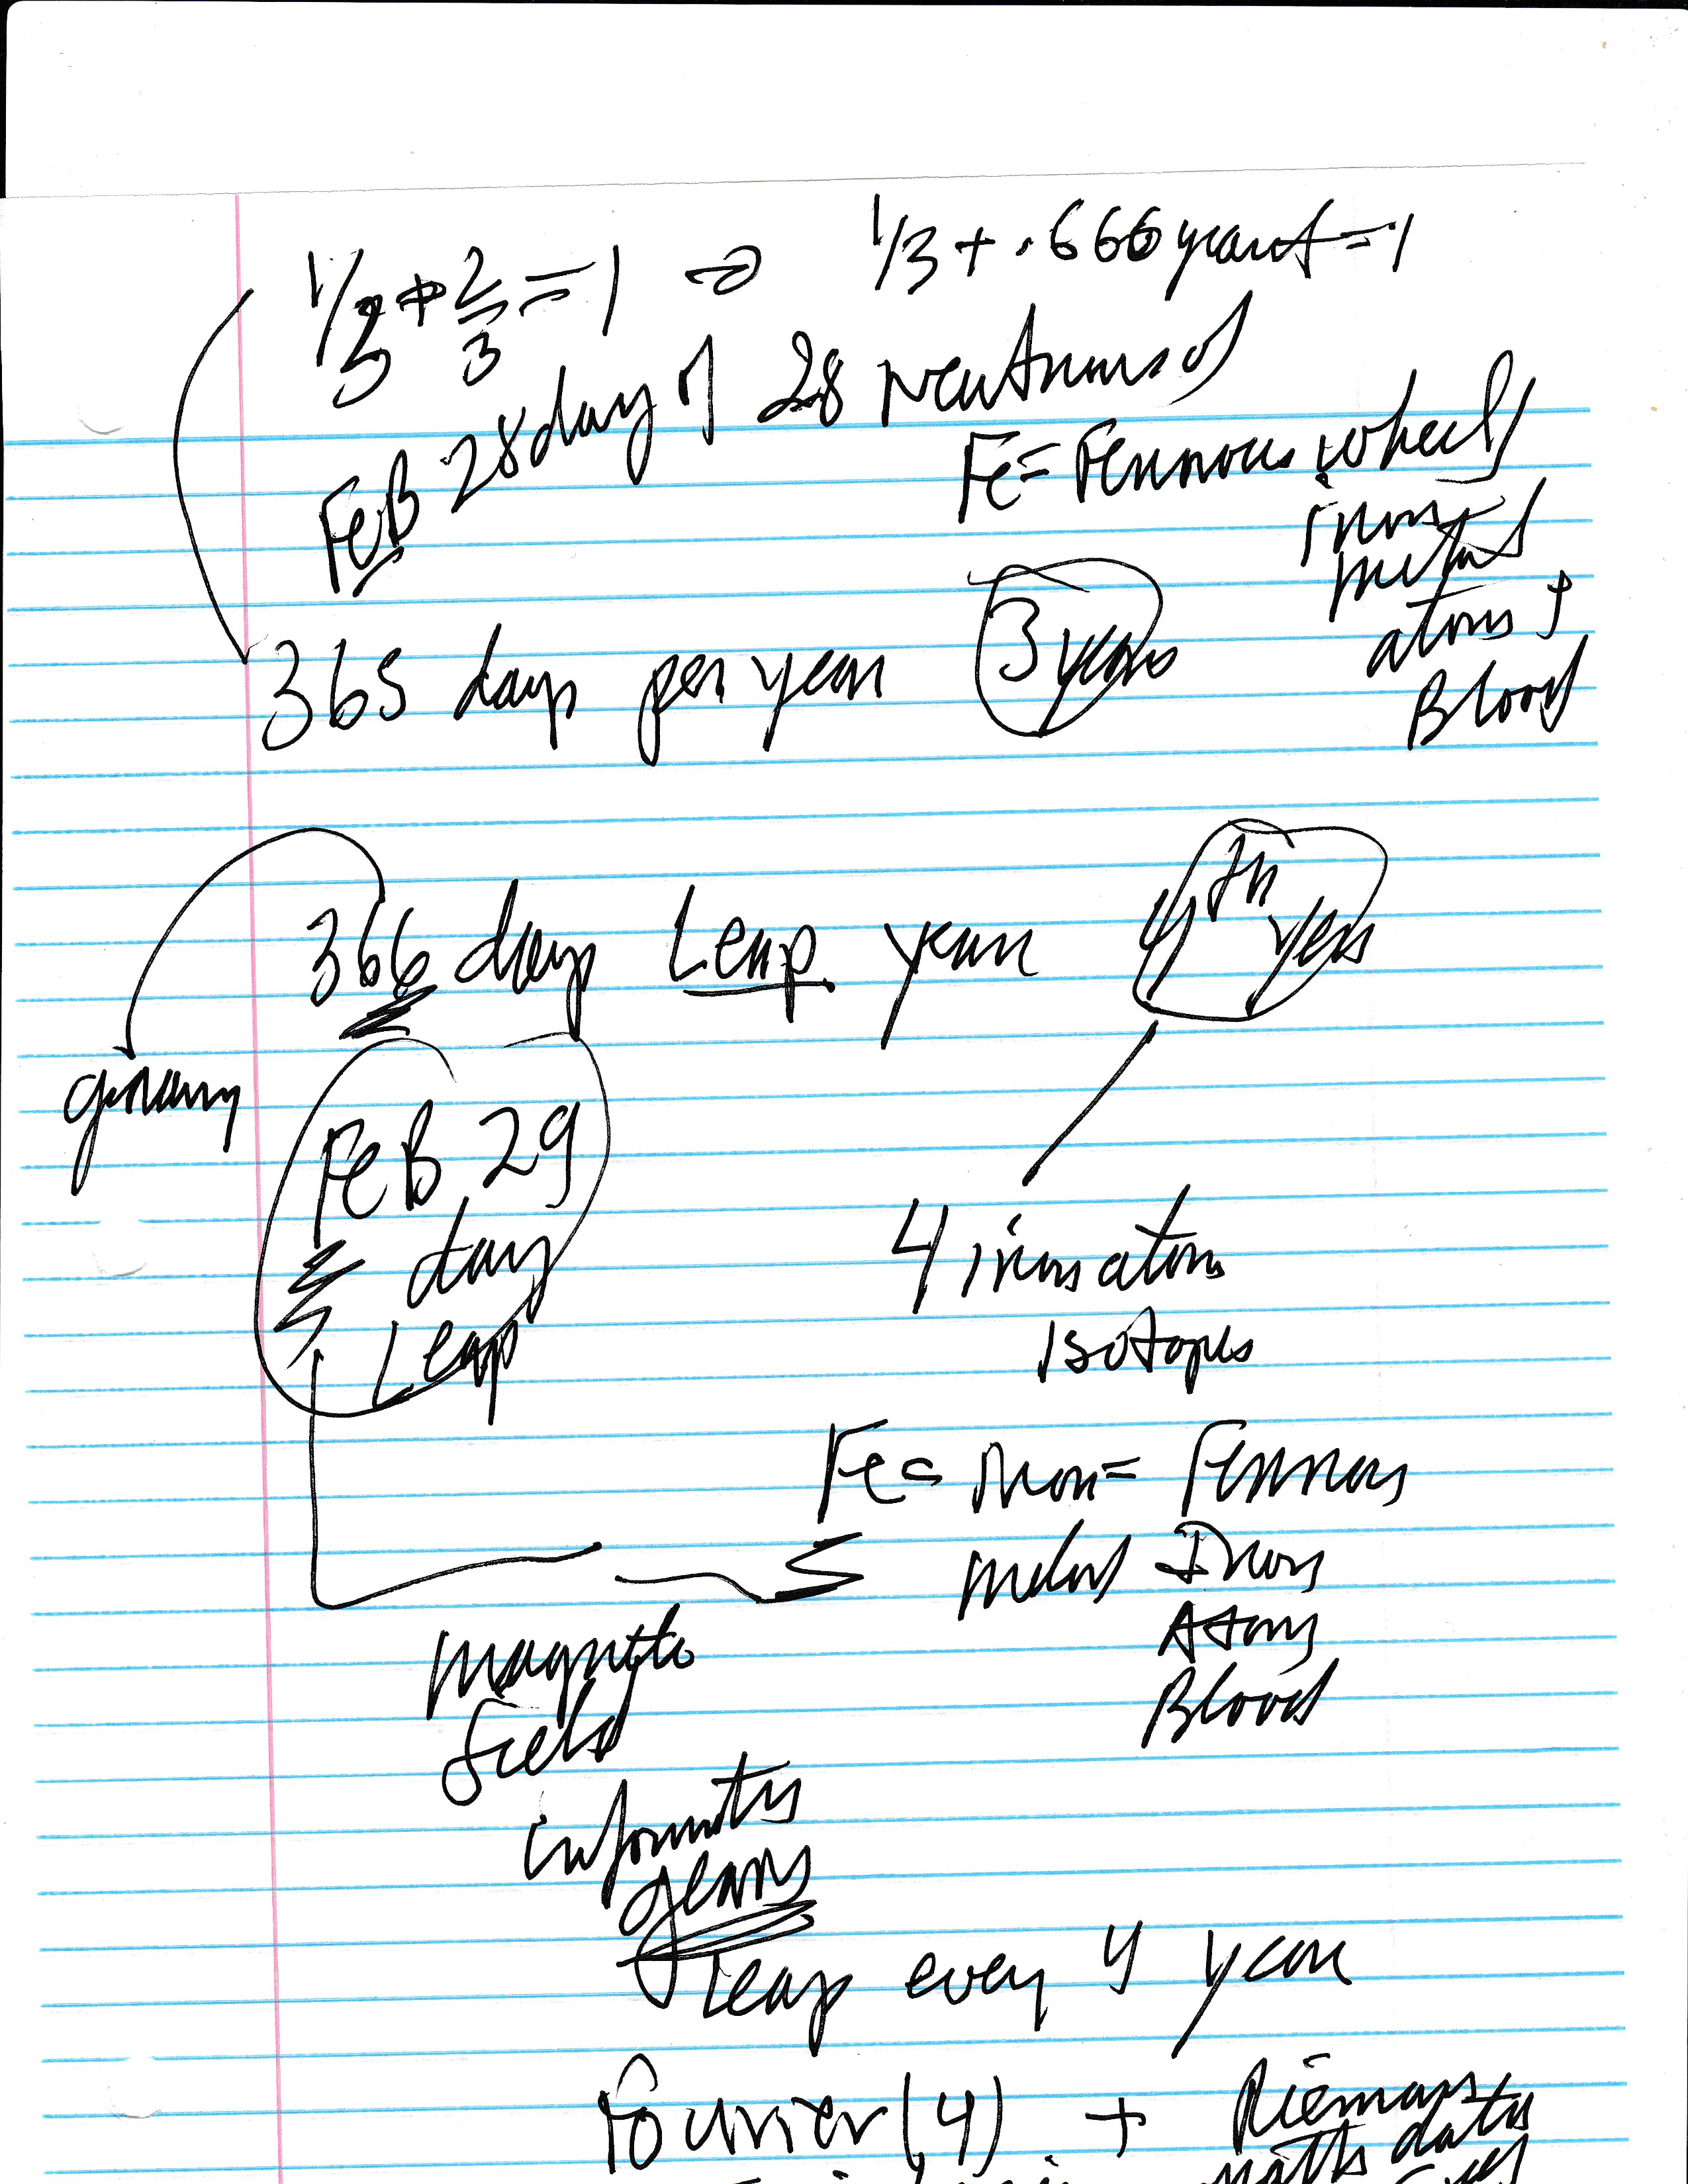 1/3 + 2/3 = 1 ⇒ 1/3 + .666 = 1
FeB 28 day of 28 Neutrons of
Fe = Ferrous wheel
iron
metal
atoms +
Blood
365 days per year 3 years
366 days Leap year 4th year
FeB 29
day
Leap
4 iron atom
isotopes
Fe = Iron = Ferrous
metal Iron
Atoms
Blood
magnetic
field
gears
Leap every 4 year
Fourier (4) + Riemann
math data